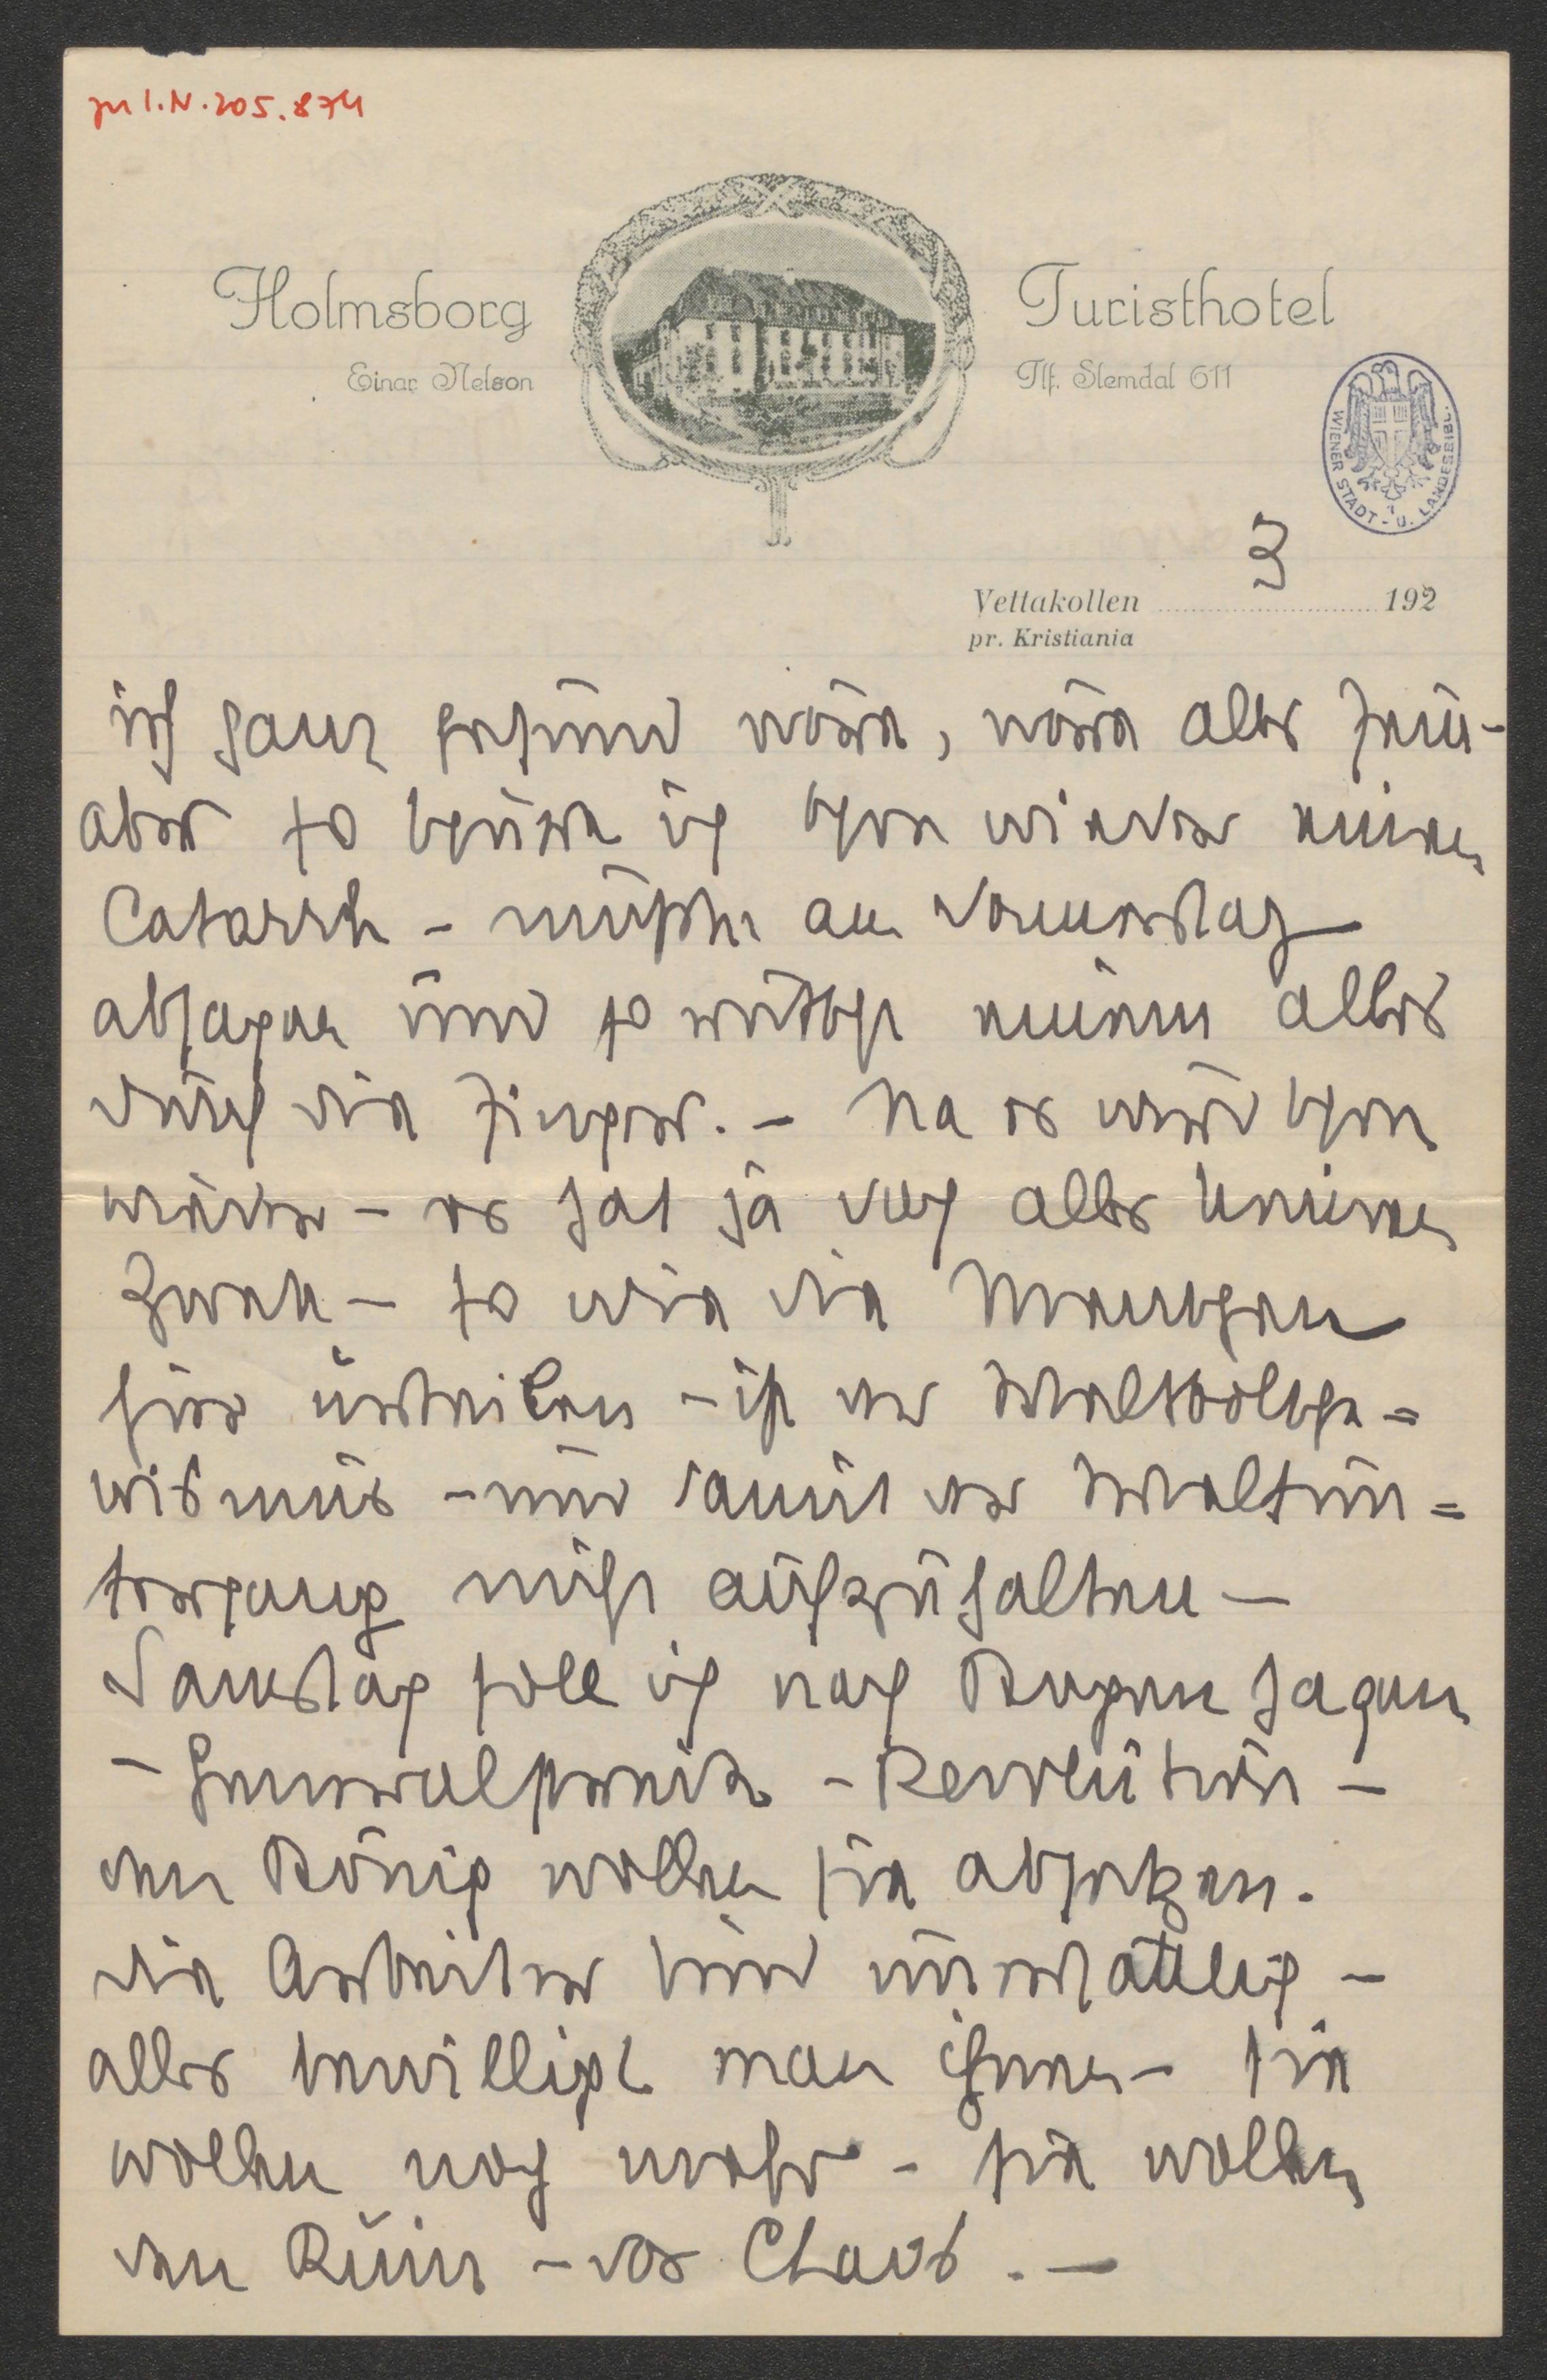 zu I.N. 205.874
Holmsborg Turisthotel
Einar Nelson Tlf. Slemdal 611
WIENER STADT- U. LANDESBIBL.
3
Vettakollen 192
pr. Kristiania
ich ganz gesund wäre, wäre alles
aber so spüre ich schon wieder meinen
Catarrh - müsste am Donnerstag
absagen und so rutscht einem alles
durch die Finger. - Na es wird schon
werden - es hat ja doch alles keinen
Zweck - so wie die Menschen
hier urteilen - ist der Weltbolsche=
wismus - und damit der Weltun=
tergang nicht aufzuhalten -
Samstag soll ich nach Kopenhagen
- Generalstreik - Revolution -
den König wollen sie absetzen.
die Arbeiter sind unersättlich -
alles bewilligt man ihnen - sie
wollen noch mehr - sie wollen
den Ruin - das Chaos. -